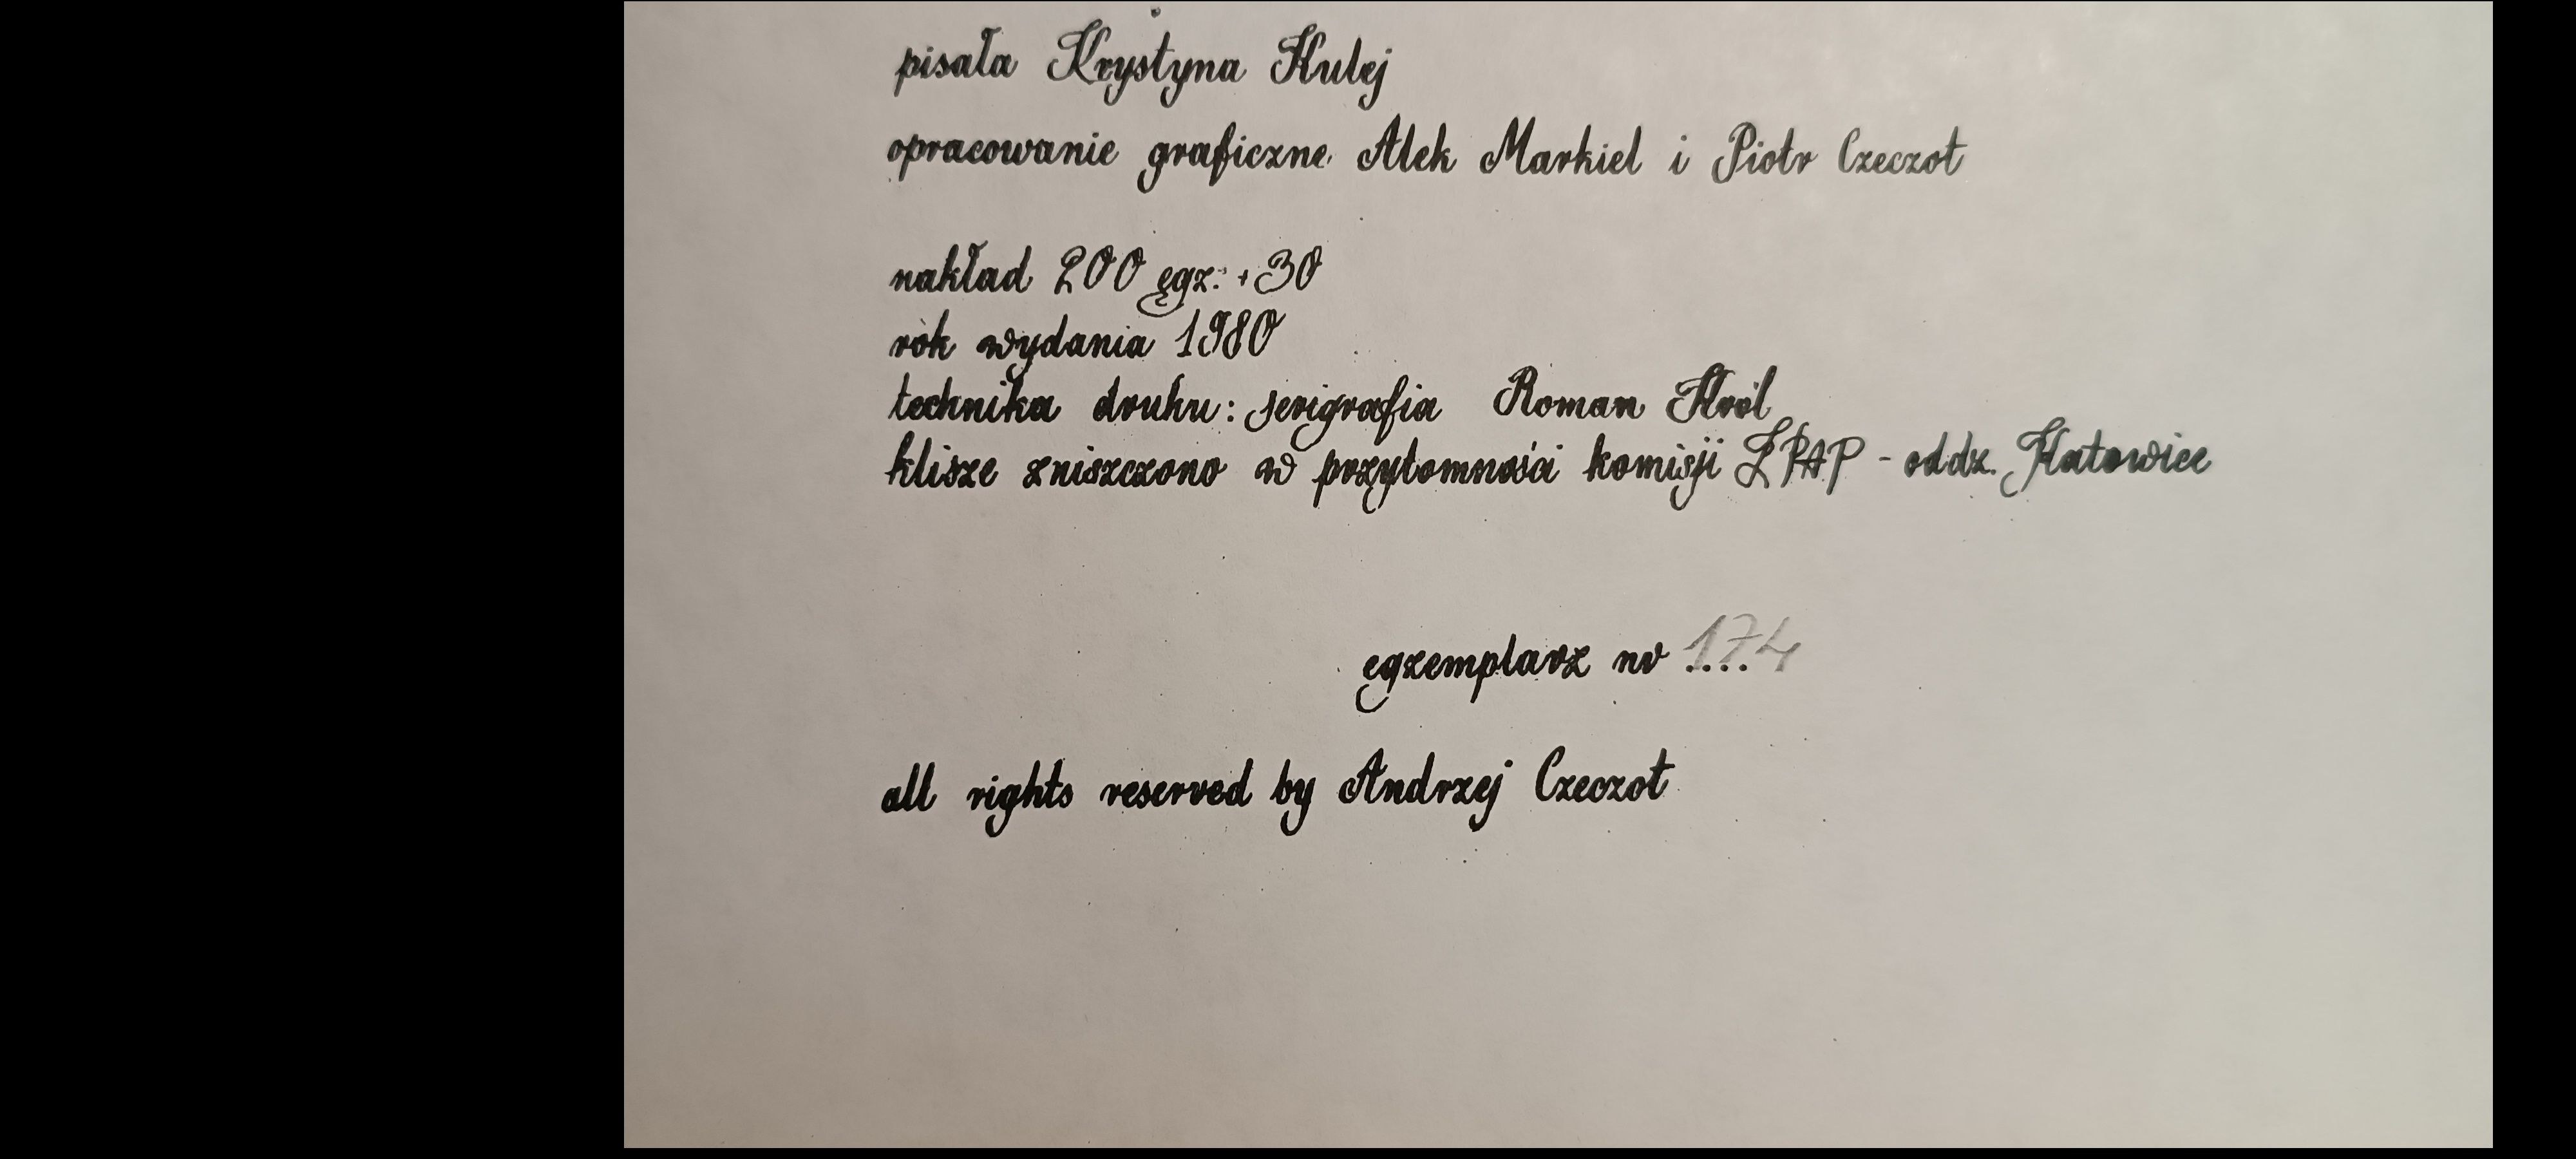 pisała Krystyna Kulej
opracowanie graficzne Alek Markiel i Piotr Czeczot
nakład 200 egz. +30
rok wydania 1980
technika druku: serigrafia Roman Król
klisze zniszczono w przytomności komisji ZPAP - oddz. Katowice
egzemplarz nr 174
all rights reserved by Andrzej Czeczot